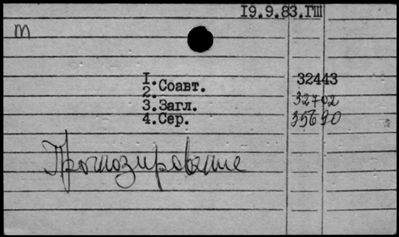 19.9.83.ГШ
т
1. Соавт. 32443
2. 32702
3. Загл.
4. Сер. 35690
Прогнозирование